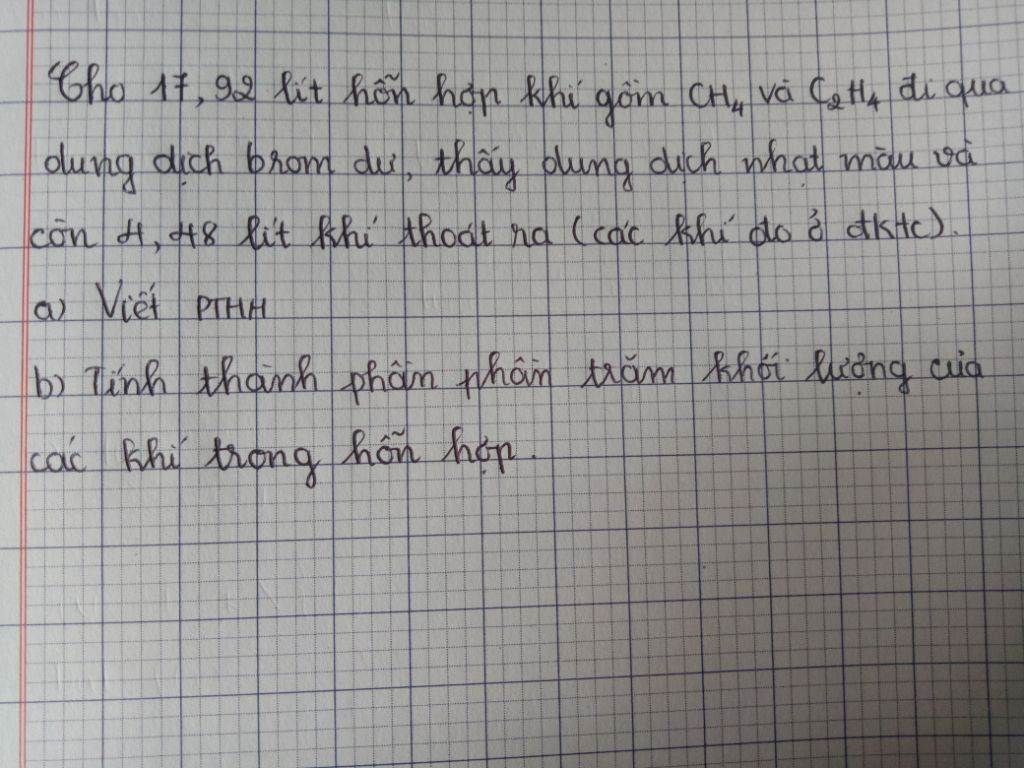 Cho 17,92 lít hỗn hợp khí gồm CH₄ và C₂H₄ đi qua
dung dịch brom dư, thấy dung dịch nhạt màu và
còn 4,48 lít khí thoát ra (các khí đo ở đktc).
a) Viết PTHH
b) Tính thành phần phần trăm khối lượng của
các khí trong hỗn hợp.